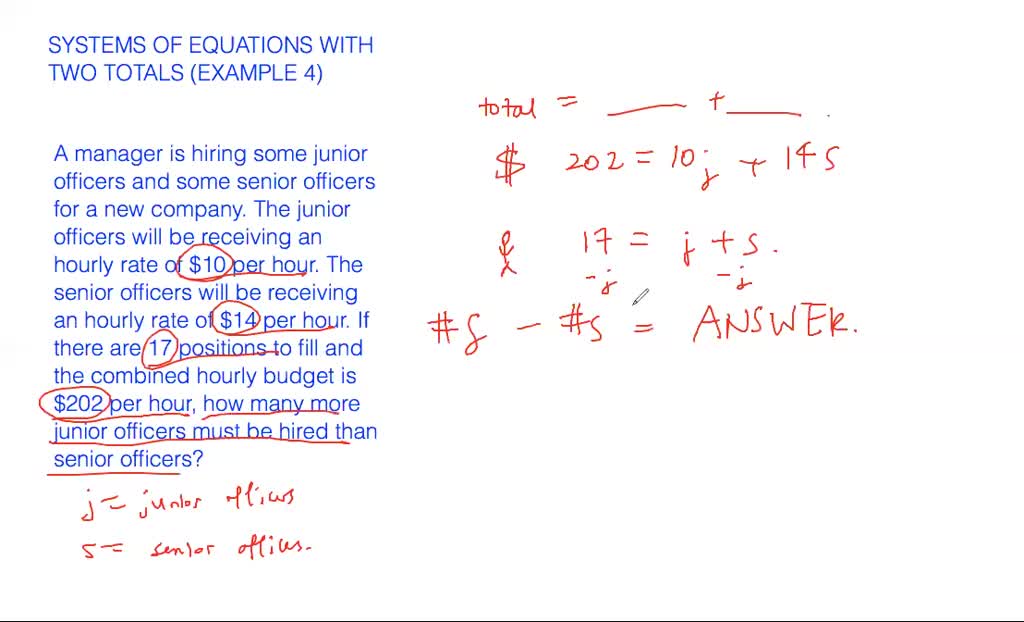 SYSTEMS OF EQUATIONS WITH
TWO TOTALS (EXAMPLE 4)
A manager is hiring some junior
officers and some senior officers
for a new company. The junior
officers will be receiving an
hourly rate of $10 per hour. The
senior officers will be receiving
an hourly rate of $14 per hour. If
there are 17 positions to fill and
the combined hourly budget is
$202 per hour, how many more
junior officers must be hired than
senior officers?
j = junior officers
s = senior officers.
total = ____ + ____ .
$ 202 = 10j + 14s
17 = j + s.
-j -j
#j - #s = ANSWER.